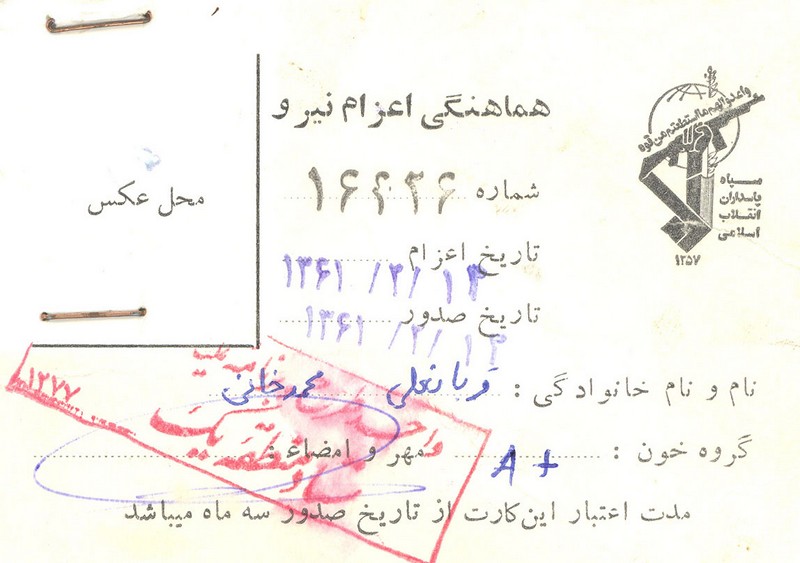 هماهنگی اعزام نیرو
واعدوالهم مااستطعتم من قوة
سپاه
پاسداران
انقلاب
اسلامی
۱۳۵۷
محل عکس
شماره
تاریخ اعزام ۱۳۶۱/۲/۱۳
تاریخ صدور ۱۳۶۱/۲/۱۳
نام و نام خانوادگی : قربانعلی محمدخانی
گروه خون : A+ مهر و امضاء :
۱۳۷۷
منطقه یک
مدت اعتبار این کارت از تاریخ صدور سه ماه میباشد